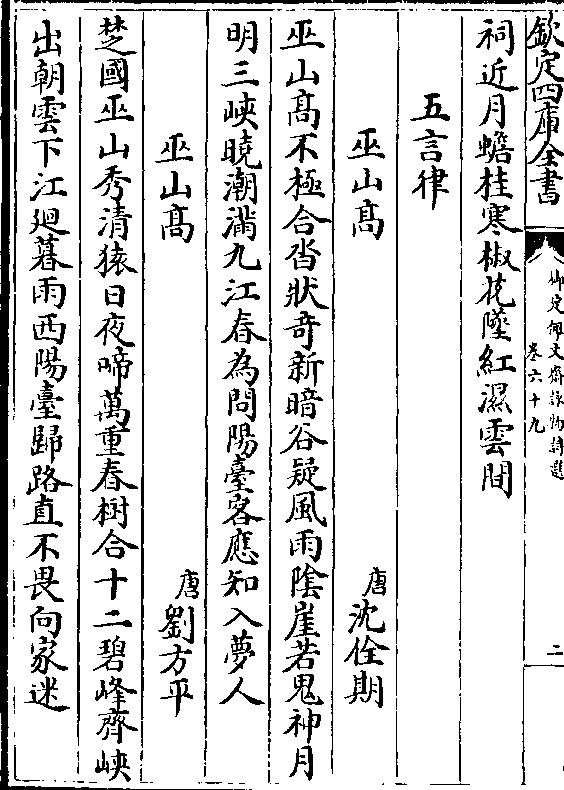 欽定四庫全書
御定佩文齋詠物詩選
卷六十九
二
祠近月蟾桂寒椒花墜紅濕雲間
五言律
巫山髙
唐沈佺期
巫山髙不極合沓狀竒新暗谷疑風雨陰崖若鬼神月
明三峽曉潮滿九江春為問陽臺客應知入夢人
巫山髙
唐劉方平
楚國巫山秀清猿日夜啼萬重春樹合十二碧峰齊峽
出朝雲下江廻暮雨西陽臺歸路直不畏向家迷